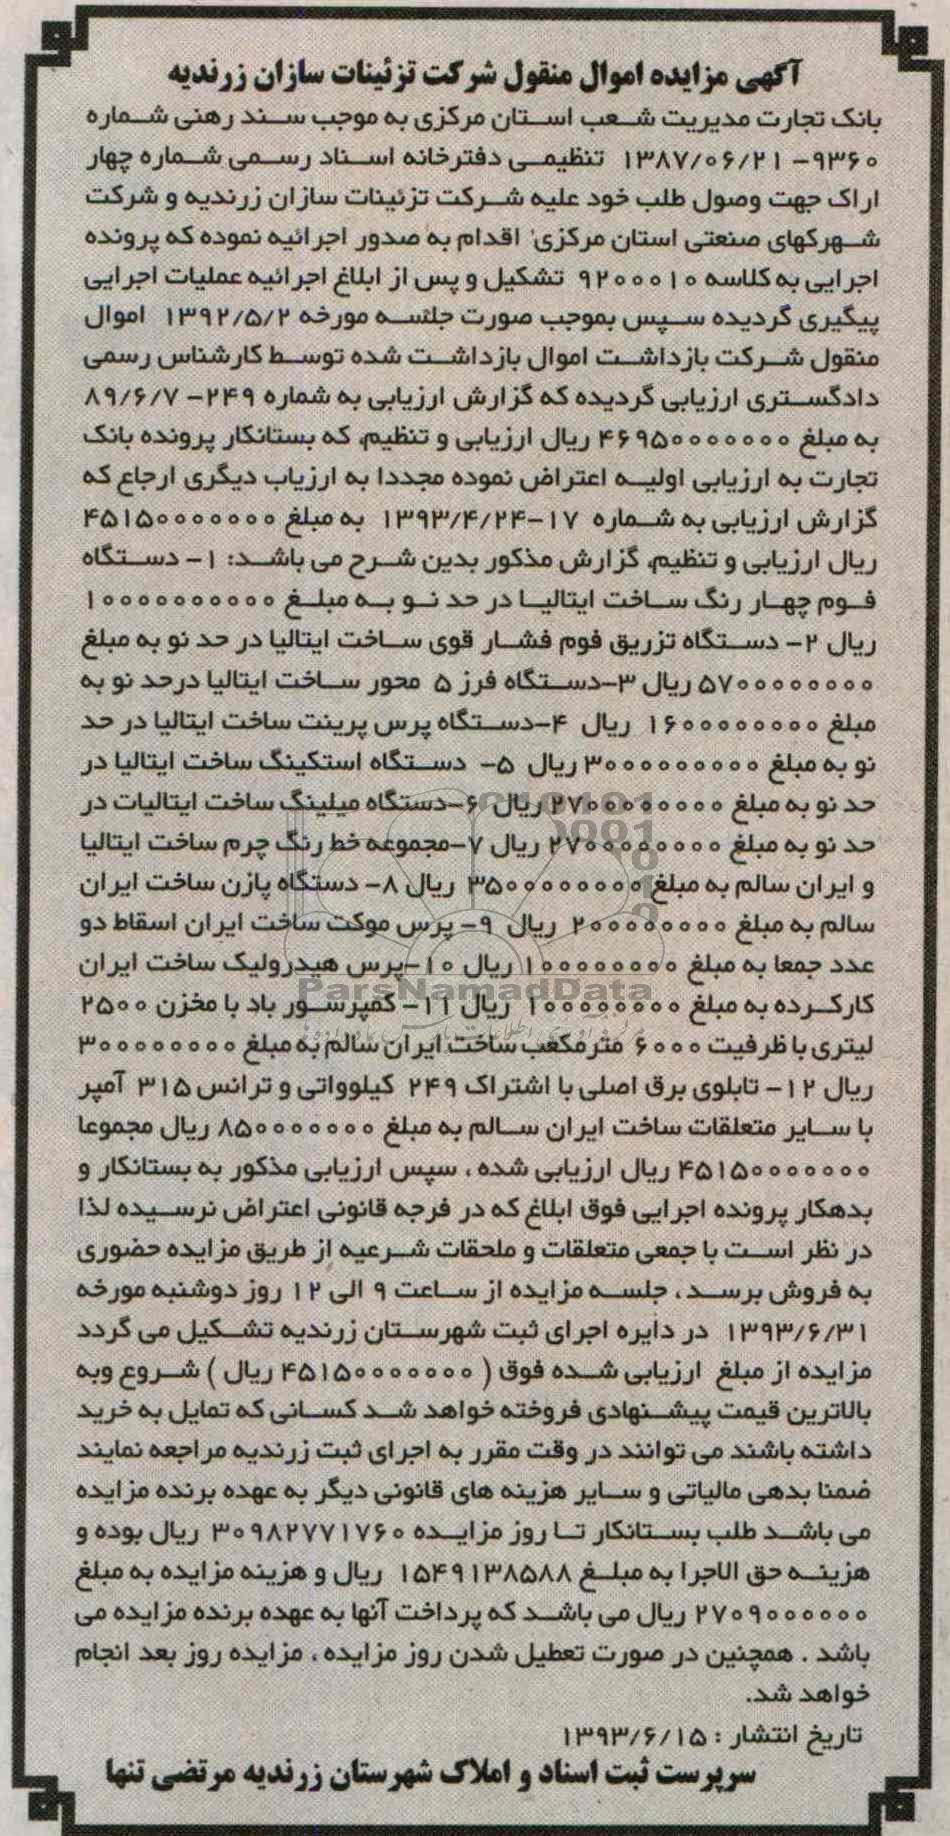 آگهی مزایده اموال منقول شرکت تزئینات سازان زرندیه
بانک تجارت مدیریت شعب استان مرکزی به موجب سند رهنی شماره
۹۳۶۰- ۱۳۸۷/۰۶/۲۱ تنظیمی دفترخانه اسناد رسمی شماره چهار
اراک جهت وصول طلب خود علیه شرکت تزئینات سازان زرندیه و شرکت
شهرکهای صنعتی استان مرکزی اقدام به صدور اجرائیه نموده که پرونده
اجرایی به کلاسه ۹۲۰۰۰۱۰ تشکیل و پس از ابلاغ اجرائیه عملیات اجرایی
پیگیری گردیده سپس بموجب صورت جلسه مورخه ۱۳۹۲/۵/۲ اموال
منقول شرکت بازداشت اموال بازداشت شده توسط کارشناس رسمی
دادگستری ارزیابی گردیده که گزارش ارزیابی به شماره ۲۴۹- ۸۹/۶/۷
به مبلغ ۴۶۹۵۰۰۰۰۰۰۰ ریال ارزیابی و تنظیم، که بستانکار پرونده بانک
تجارت به ارزیابی اولیه اعتراض نموده مجددا به ارزیاب دیگری ارجاع که
گزارش ارزیابی به شماره ۱۷-۱۳۹۳/۴/۲۴ به مبلغ ۴۵۱۵۰۰۰۰۰۰۰
ریال ارزیابی و تنظیم، گزارش مذکور بدین شرح می باشد: ۱- دستگاه
فوم چهار رنگ ساخت ایتالیا در حد نو به مبلغ ۱۰۰۰۰۰۰۰۰۰۰
ریال ۲- دستگاه تزریق فوم فشار قوی ساخت ایتالیا در حد نو به مبلغ
۵۷۰۰۰۰۰۰۰۰ ریال ۳-دستگاه فرز ۵ محور ساخت ایتالیا درحد نو به
مبلغ ۱۶۰۰۰۰۰۰۰۰ ریال ۴-دستگاه پرس پرینت ساخت ایتالیا در حد
نو به مبلغ ۳۰۰۰۰۰۰۰۰۰ ریال ۵- دستگاه استکینگ ساخت ایتالیا در
حد نو به مبلغ ۲۷۰۰۰۰۰۰۰۰ ریال ۶-دستگاه میلینگ ساخت ایتالیات در
حد نو به مبلغ ۲۷۰۰۰۰۰۰۰۰ ریال ۷-مجموعه خط رنگ چرم ساخت ایتالیا
و ایران سالم به مبلغ ۳۵۰۰۰۰۰۰۰۰ ریال ۸- دستگاه پازن ساخت ایران
سالم به مبلغ ۲۰۰۰۰۰۰۰۰ ریال ۹- پرس موکت ساخت ایران اسقاط دو
عدد جمعا به مبلغ ۱۰۰۰۰۰۰۰۰ ریال ۱۰-پرس هیدرولیک ساخت ایران
ParsNamadData
کارکرده به مبلغ ۱۰۰۰۰۰۰۰۰ ریال ۱۱- کمپرسور باد با مخزن ۲۵۰۰
لیتری با ظرفیت ۶۰۰۰ مترمکعب ساخت ایران سالم به مبلغ ۳۰۰۰۰۰۰۰۰
ریال ۱۲- تابلوی برق اصلی با اشتراک ۲۴۹ کیلوواتی و ترانس ۳۱۵ آمپر
با سایر متعلقات ساخت ایران سالم به مبلغ ۸۵۰۰۰۰۰۰۰ ریال مجموعا
۴۵۱۵۰۰۰۰۰۰۰ ریال ارزیابی شده ، سپس ارزیابی مذکور به بستانکار و
بدهکار پرونده اجرایی فوق ابلاغ که در فرجه قانونی اعتراض نرسیده لذا
در نظر است با جمعی متعلقات و ملحقات شرعیه از طریق مزایده حضوری
به فروش برسد ، جلسه مزایده از ساعت ۹ الی ۱۲ روز دوشنبه مورخه
۱۳۹۳/۶/۳۱ در دایره اجرای ثبت شهرستان زرندیه تشکیل می گردد
مزایده از مبلغ ارزیابی شده فوق ( ۴۵۱۵۰۰۰۰۰۰۰ ریال ) شروع وبه
بالاترین قیمت پیشنهادی فروخته خواهد شد کسانی که تمایل به خرید
داشته باشند می توانند در وقت مقرر به اجرای ثبت زرندیه مراجعه نمایند
ضمنا بدهی مالیاتی و سایر هزینه های قانونی دیگر به عهده برنده مزایده
می باشد طلب بستانکار تا روز مزایده ۳۰۹۸۲۷۷۱۷۶۰ ریال بوده و
هزینه حق الاجرا به مبلغ ۱۵۴۹۱۳۸۵۸۸ ریال و هزینه مزایده به مبلغ
۲۷۰۹۰۰۰۰۰۰ ریال می باشد که پرداخت آنها به عهده برنده مزایده می
باشد . همچنین در صورت تعطیل شدن روز مزایده ، مزایده روز بعد انجام
خواهد شد.
تاریخ انتشار : ۱۳۹۳/۶/۱۵
سرپرست ثبت اسناد و املاک شهرستان زرندیه مرتضی تنها